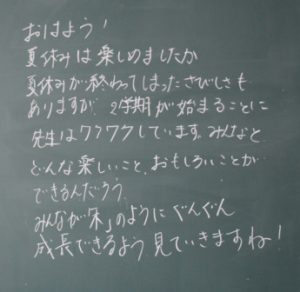 おはよう!
夏休みは楽しめましたか
夏休みが終わってしまったさびしさも
ありますが、2学期が始まることに
先生はワクワクしています。みんなと
どんな楽しいこと、おもしろいことが
できるんだろう。
みんなが「朱」のようにぐんぐん
成長できるよう見ていきますね!